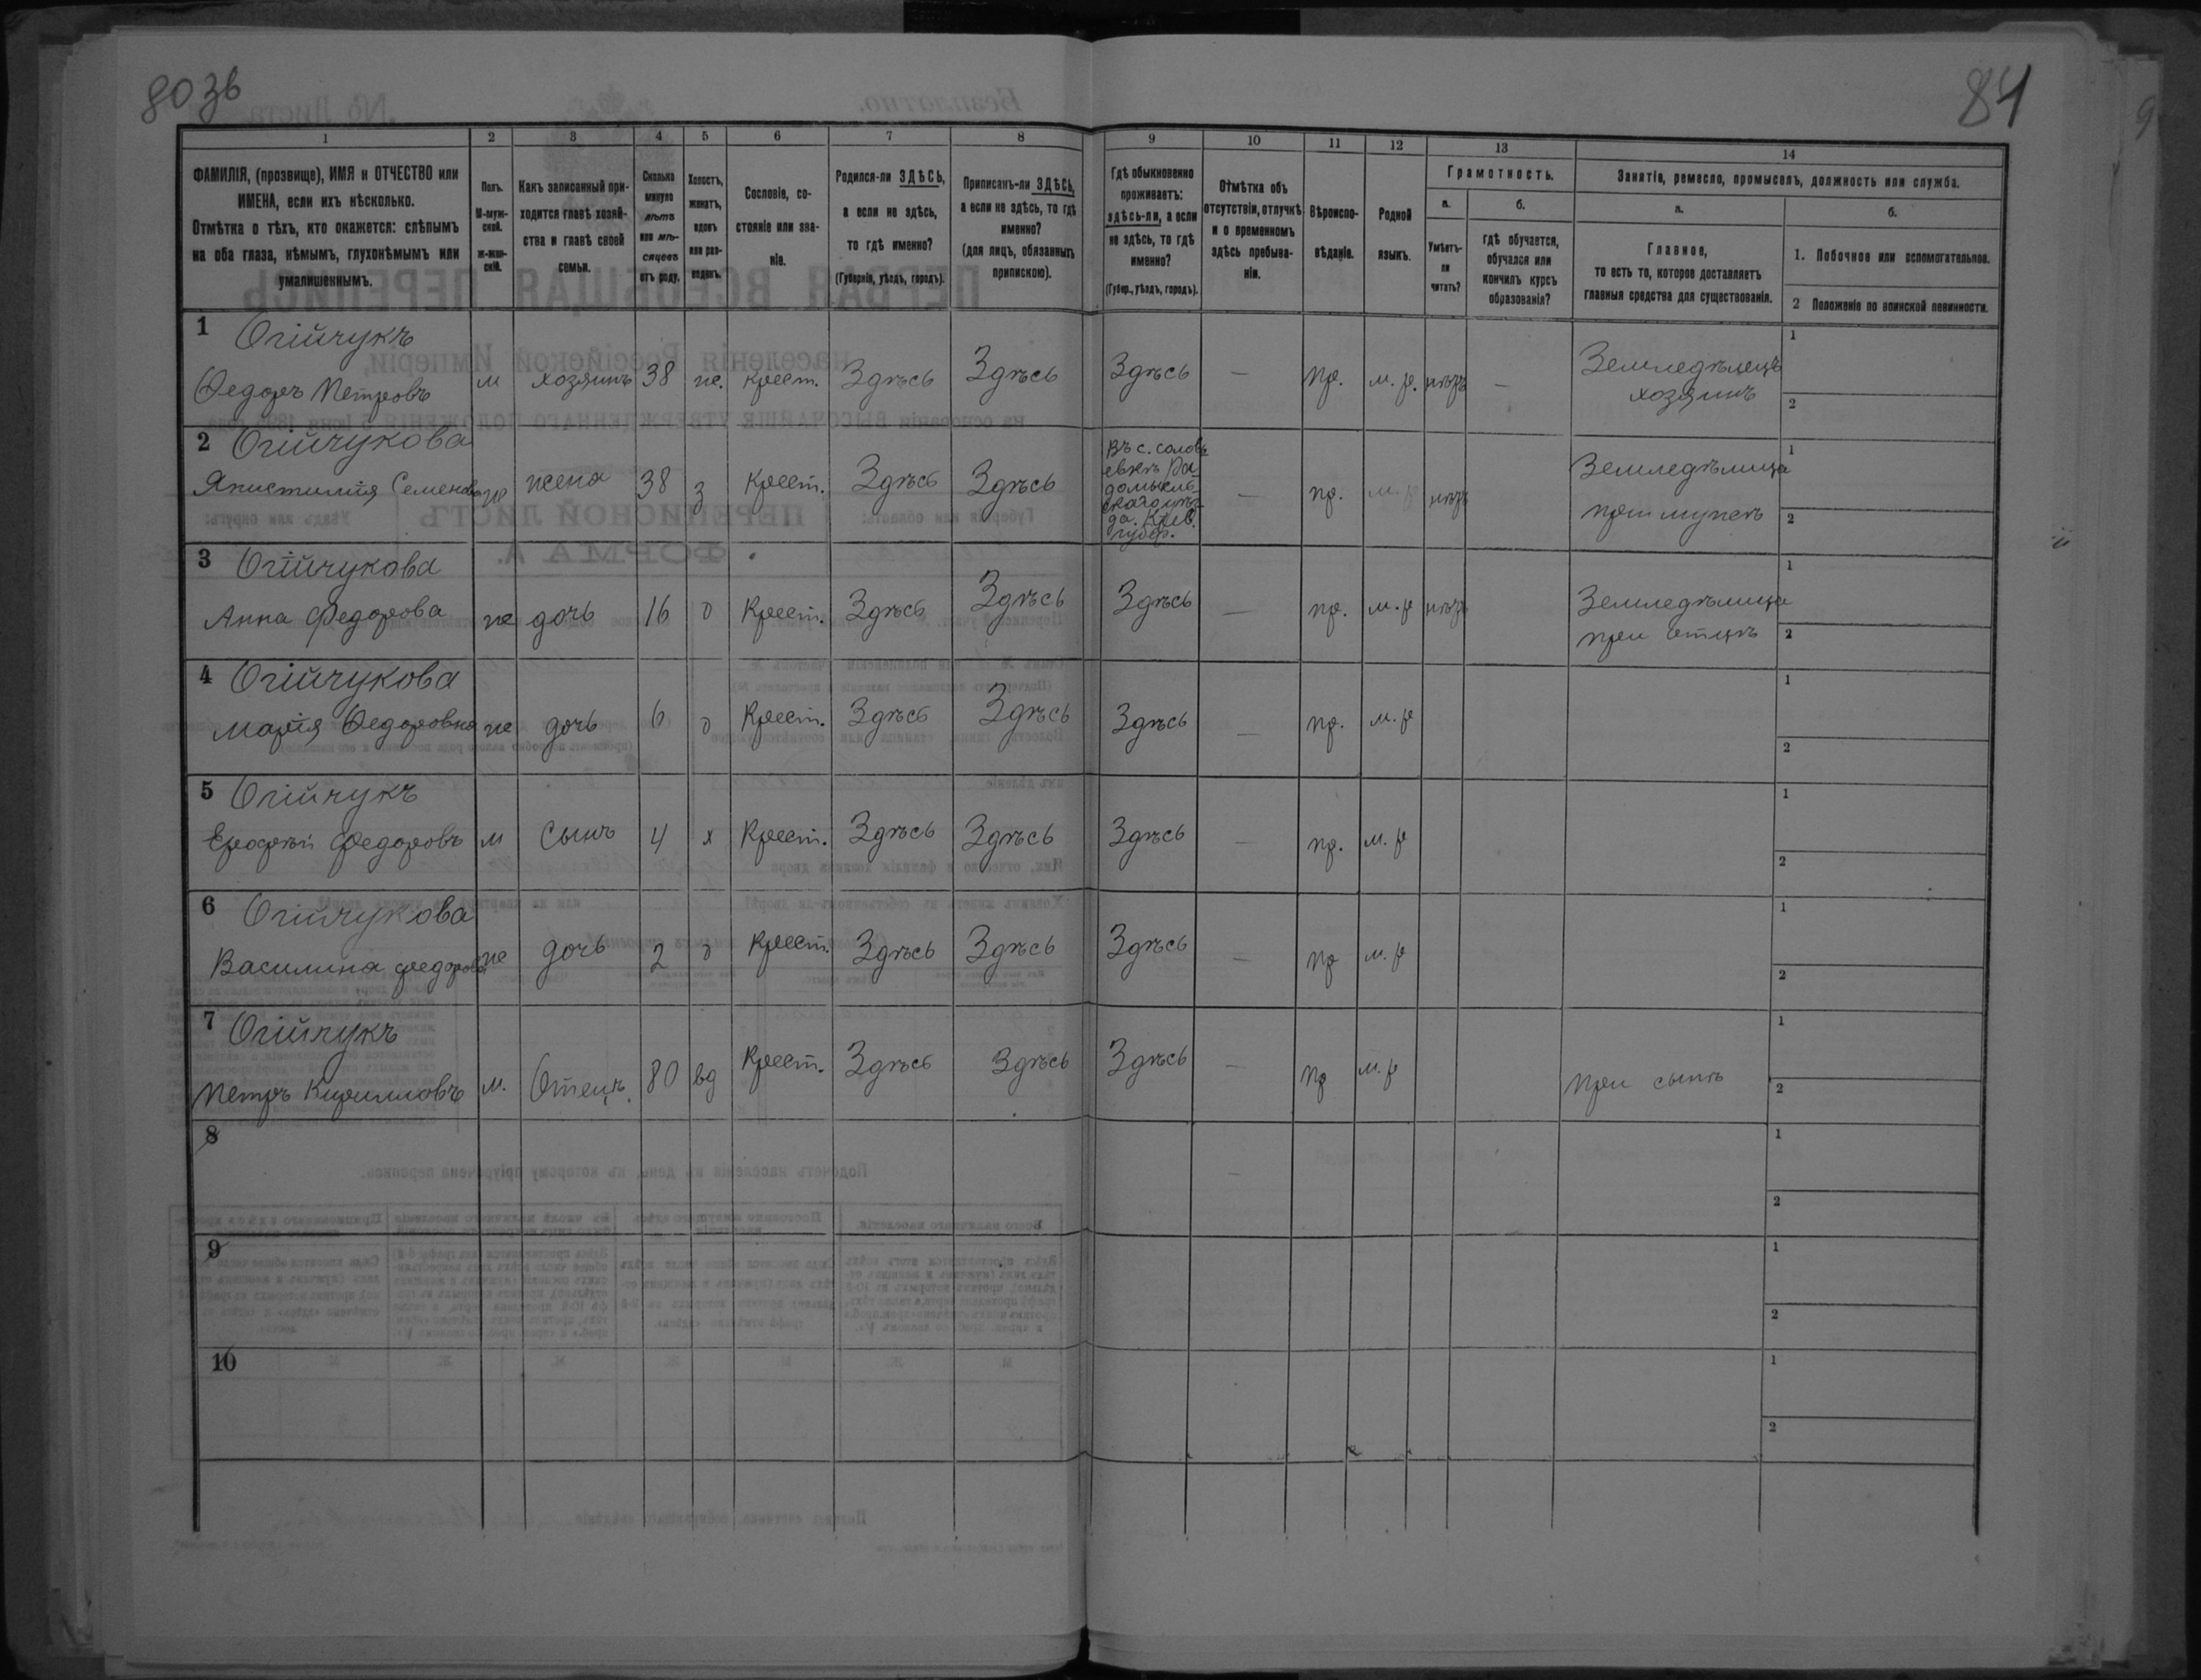 80 зв
84
1 2 3 4 5 6 7 8 9 10 11 12 13 14
ФАМИЛІЯ, (прозвище), ИМЯ и ОТЧЕСТВО или
ИМЕНА, если ихъ нѣсколько.
Отмѣтка о тѣхъ, кто окажется: слѣпымъ
на оба глаза, нѣмымъ, глухонѣмымъ или
умалишеннымъ.
Полъ.
М-муж-
ской.
ж-жен-
скій.
Какъ записанный при-
ходится главѣ хозяй-
ства и главѣ своей
семьи.
Сколько
минуло
лѣтъ
или мѣ-
сяцевъ
отъ роду.
Холостъ,
женатъ,
вдовъ
или раз-
веденъ.
Сословіе, со-
стояніе или зва-
ніе.
Родился-ли ЗДѢСЬ,
а если не здѣсь,
то гдѣ именно?
(Губернія, уѣздъ, городъ).
Приписанъ-ли ЗДѢСЬ,
а если не здѣсь, то гдѣ
именно?
(для лицъ, обязанныхъ
припискою).
Гдѣ обыкновенно
проживаетъ:
здѣсь-ли, а если
не здѣсь, то гдѣ
именно?
(Губер., уѣздъ, городъ).
Отмѣтка объ
отсутствіи, отлучкѣ
и о временномъ
здѣсь пребыва-
ніи.
Вѣроиспо-
вѣданіе.
Родной
языкъ.
Грамотность.
а.
б.
Умѣетъ-
ли
читать?
гдѣ обучается,
обучался или
кончилъ курсъ
образованія?
Занятіе, ремесло, промыселъ, должность или служба.
а.
б.
Главное,
то есть то, которое доставляетъ
главныя средства для существованія.
1. Побочное или вспомогательное.
2 Положеніе по воинской повинности.
1 Огійчукъ
Федоръ Петровъ м хозяинъ 38 же. крест. Здѣсь Здѣсь Здѣсь — пр. м. р. нѣтъ — Земледѣлецъ
хозяинъ
1
2
2 Огійчукова
Анистилія Семенова ж жена 38 з Крест. Здѣсь Здѣсь
Въ с. Соловь
евкѣ Ра-
домысль-
скаго уѣз-
да. Кіев.
губер.
— пр. м. р нѣтъ Земледѣлица
при мужѣ
1
2
3 Огійчукова
Анна Федорова ж дочь 16 д Крест. Здѣсь Здѣсь Здѣсь — пр. м. р нѣтъ Земледѣлица
при отцѣ
1
2
4 Огійчукова
Марія Федоровна ж дочь 6 д Крест. Здѣсь Здѣсь Здѣсь — пр. м. р
1
2
5 Огійчукъ
Ерофѣй Федоровъ м Сынъ 4 х Крест. Здѣсь Здѣсь Здѣсь — пр. м. р
1
2
6 Огійчукова
Василина Федорова ж дочь 2 д Крест. Здѣсь Здѣсь Здѣсь — пр м. р
1
2
7 Огійчукъ
Петръ Кирилловъ м. Отецъ. 80 вд Крест. Здѣсь Здѣсь Здѣсь — пр м. р при сынѣ
1
2
8 —
1
2
9
1
2
10
1
2